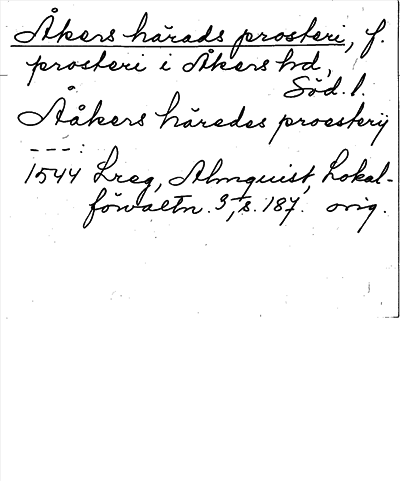 Åkers härads prosteri, f.
prosteri i Åkers hd,
Söd. l.
Aåkers häredes proesterij
---:
1544 Lreg, Almquist, Lokal-
förvaltn. 3, s. 187. orig.